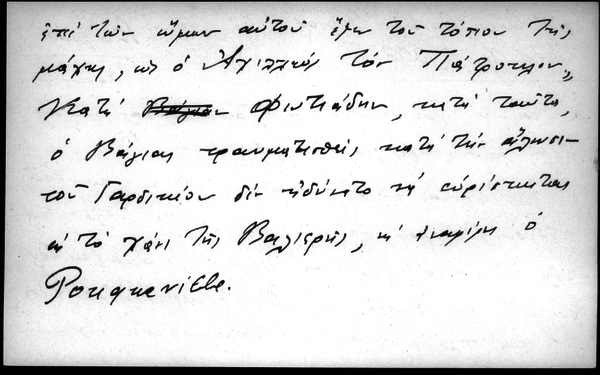 ἐπὶ τῶν ὤμων αὐτοῦ ἔξω τοῦ τόπου τῆς
μάχης, ὡς ὁ Ἀχιλλεύς τὸν Πάτροκλον„
Κατὰ Βάγιαν Φιντιάδην, κατὰ ταῦτα,
ὁ Βάγιας τραυματισθεὶς κατὰ τὴν ἅλωσι-
τοῦ Γαρδικίου δὲν ἠδύνατο νὰ εὑρίσκεται
εἰς τὸ χάνι τῆς Βαλιαρῆς, ὡς ἀναφέρει ὁ
Pouqueville.